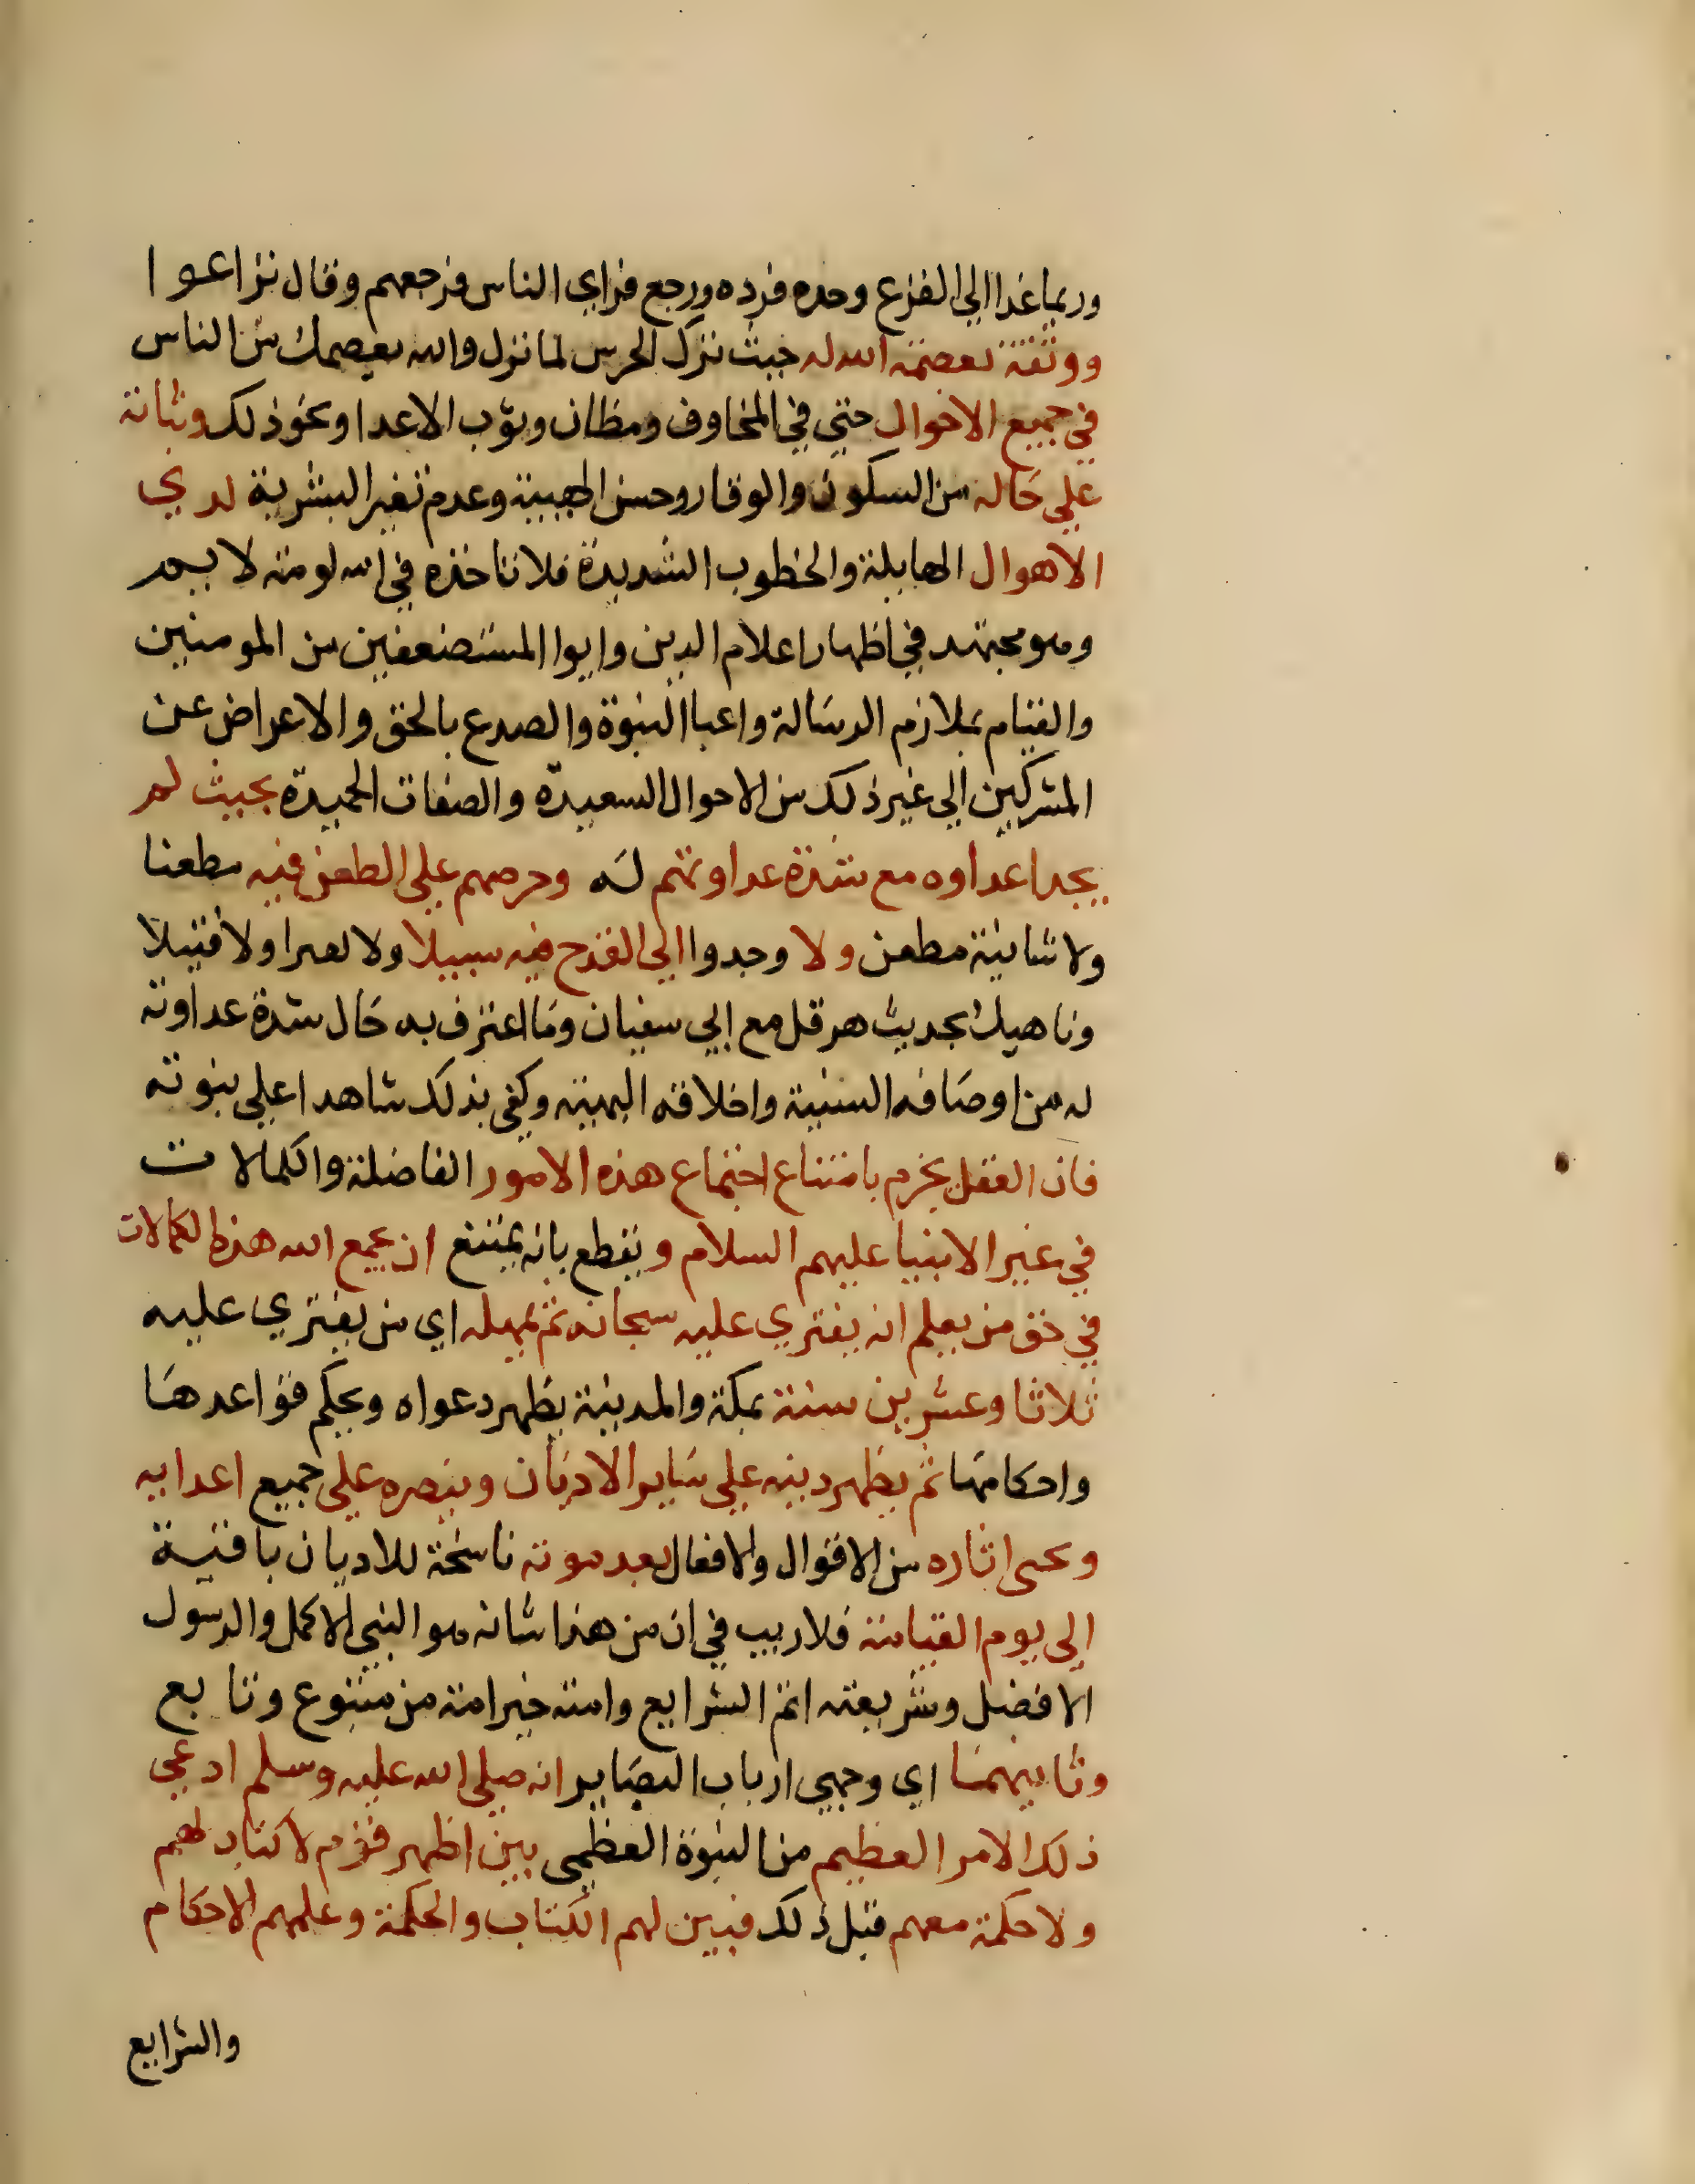 وربما غدا الي الفزع وحده فرده ورجع فراي الناس فرجعهم وقال نراعوا
ووثقته بعصمة الله له حيث ترك الحرس لما نزل والله يعصمك من الناس
في جميع الاحوال حتي في المخاوف ومظان وثوب الاعدا ونحو ذلك وثباته
علي حاله من السكون والوقار وحسن الهيبة وعدم تغير البشرية لدي
الاهوال الهايلة والخطوب الشديدة فلا تاخذه في الله لومة لايم
وهو مجتهد في اظهار اعلام الدين وايوا المستضعفين من المومنين
والقيام بملازم الرسالة واعبا النبوة والصدع بالحق والاعراض عن
المشركين الي غير ذلك من الاحوال السعيدة والصفات الحميدة بحيث لم
يجد اعداوه مع شدة عداوتهم له وحرصهم علي الطعن فيه مطعنا
ولا شايبة مطعن ولا وجدوا الي القدح فيه سبيلا ولا نقيرا ولا فتيلا
وناهيك بحديث هرقل مع ابي سفيان وما اعترف به حال شدة عداوته
له من اوصافه السنية واخلاقه البهية وكفي بذلك شاهدا علي نبوته
فان العقل يجزم بامتناع اجتماع هذه الامور الفاضلة والكمالات
في غير الانبيا عليهم السلام ويقطع بانه يمتنع ان يجمع الله هذه الكمالات
في حق من يعلم انه يفتري عليه سبحانه ثم يمهله اي من يفتري عليه
ثلاثا وعشرين سنة بمكة والمدينة يظهر دعواه ويحكم قواعدها
واحكامها ثم يظهر دينه علي ساير الاديان وينصره علي جميع اعدايه
ويحيي اثاره من الاقوال والافعال بعد موته ناسخة للاديان باقية
الي يوم القيامة فلا ريب في ان من هذا شانه هو النبي الاكمل والرسول
الافضل وشريعته اتم الشرايع وامته خير امة من متبوع وتابع
وثانيهما اي وجهي ارباب البصاير انه صلي الله عليه وسلم ادعي
ذلك الامر العظيم من النبوة العظمي بين اظهر قوم لا كتاب لهم
ولا حكمة معهم قبل ذلك فبين لهم الكتاب والحكمة وعلمهم الاحكام
والشرايع